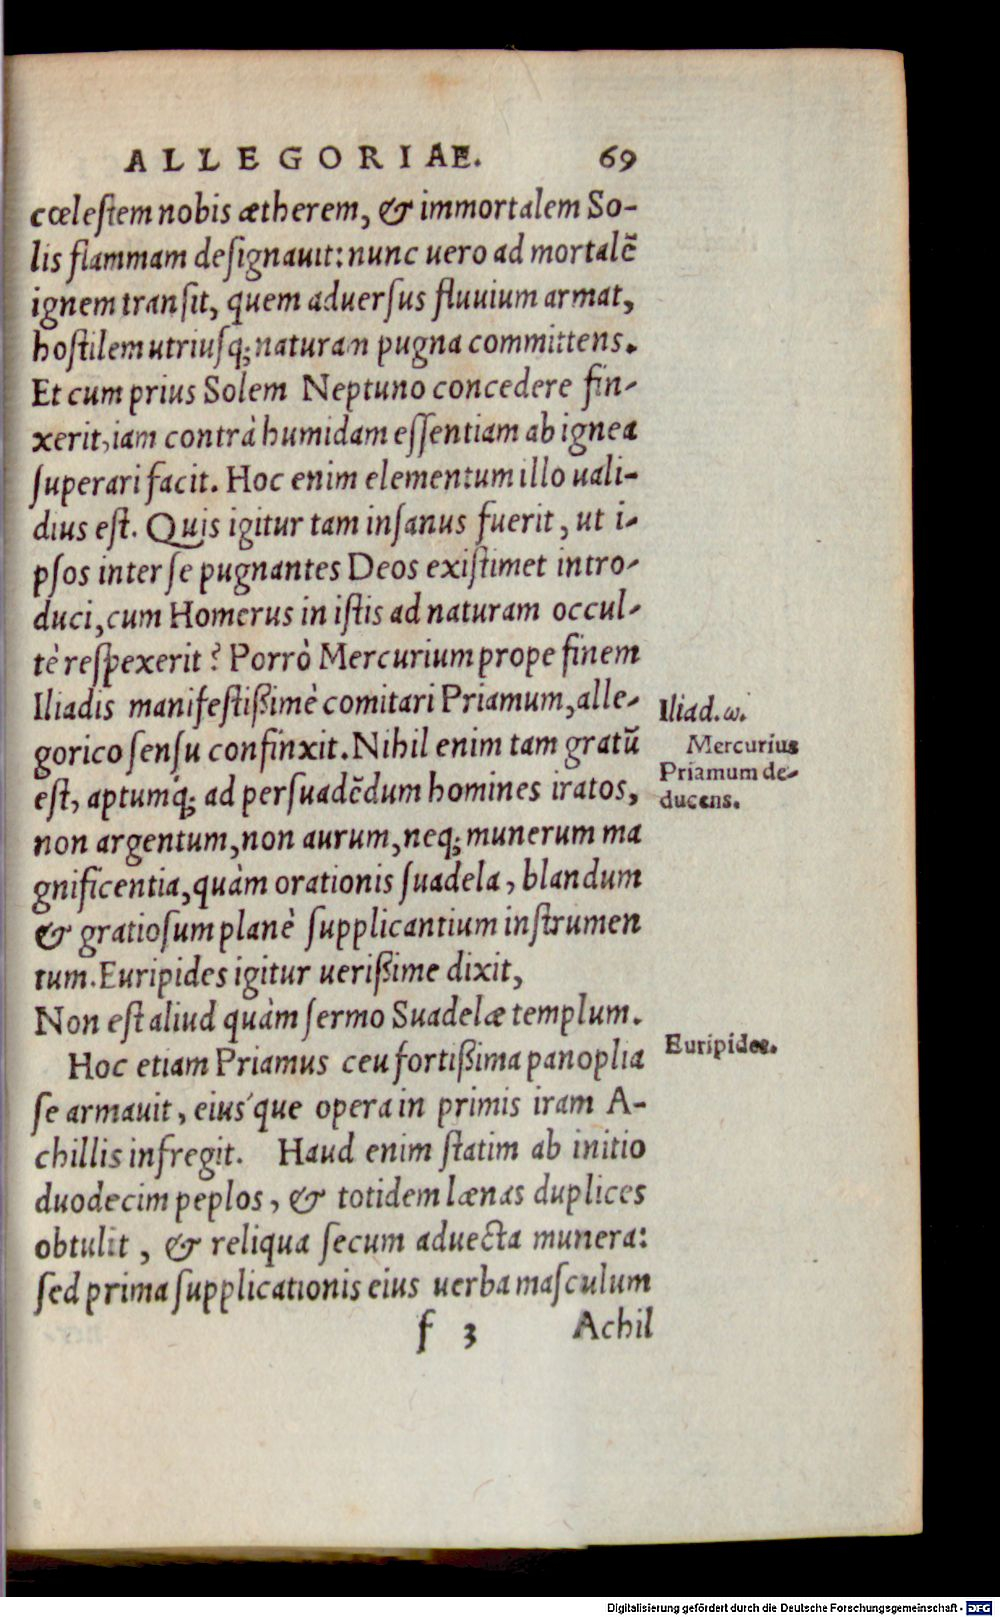 ALLEGORIAE. 69
cœlestem nobis ætherem, & immortalem So-
lis flammam designauit: nunc uero ad mortalē
ignem transit, quem aduersus fluuium armat,
hostilem utriusq; naturam pugna committens.
Et cum prius Solem Neptuno concedere fin-
xerit, iam contrà humidam essentiam ab ignea
superari facit. Hoc enim elementum illo uali-
dius est. Quis igitur tam insanus fuerit, ut i-
psos inter se pugnantes Deos existimet intro-
duci, cum Homerus in istis ad naturam occul-
tè respexerit? Porrò Mercurium prope finem
Iliadis manifestißimè comitari Priamum, alle-
gorico sensu confinxit. Nihil enim tam gratū
est, aptumq́; ad persuadēdum homines iratos,
non argentum, non aurum, neq; munerum ma
gnificentia, quàm orationis suadela, blandum
& gratiosum planè supplicantium instrumen
tum. Euripides igitur uerißime dixit,
Non est aliud quàm sermo Suadelæ templum.
Hoc etiam Priamus ceu fortißima panoplia
se armauit, eius´que opera in primis iram A-
chillis infregit. Haud enim statim ab initio
duodecim peplos, & totidem lænas duplices
obtulit, & reliqua secum aduecta munera:
sed prima supplicationis eius uerba masculum
f 3 Achil
Iliad. ω.
Mercurius
Priamum de-
ducens.
Euripides.
Digitalisierung gefördert durch die Deutsche Forschungsgemeinschaft - DFG